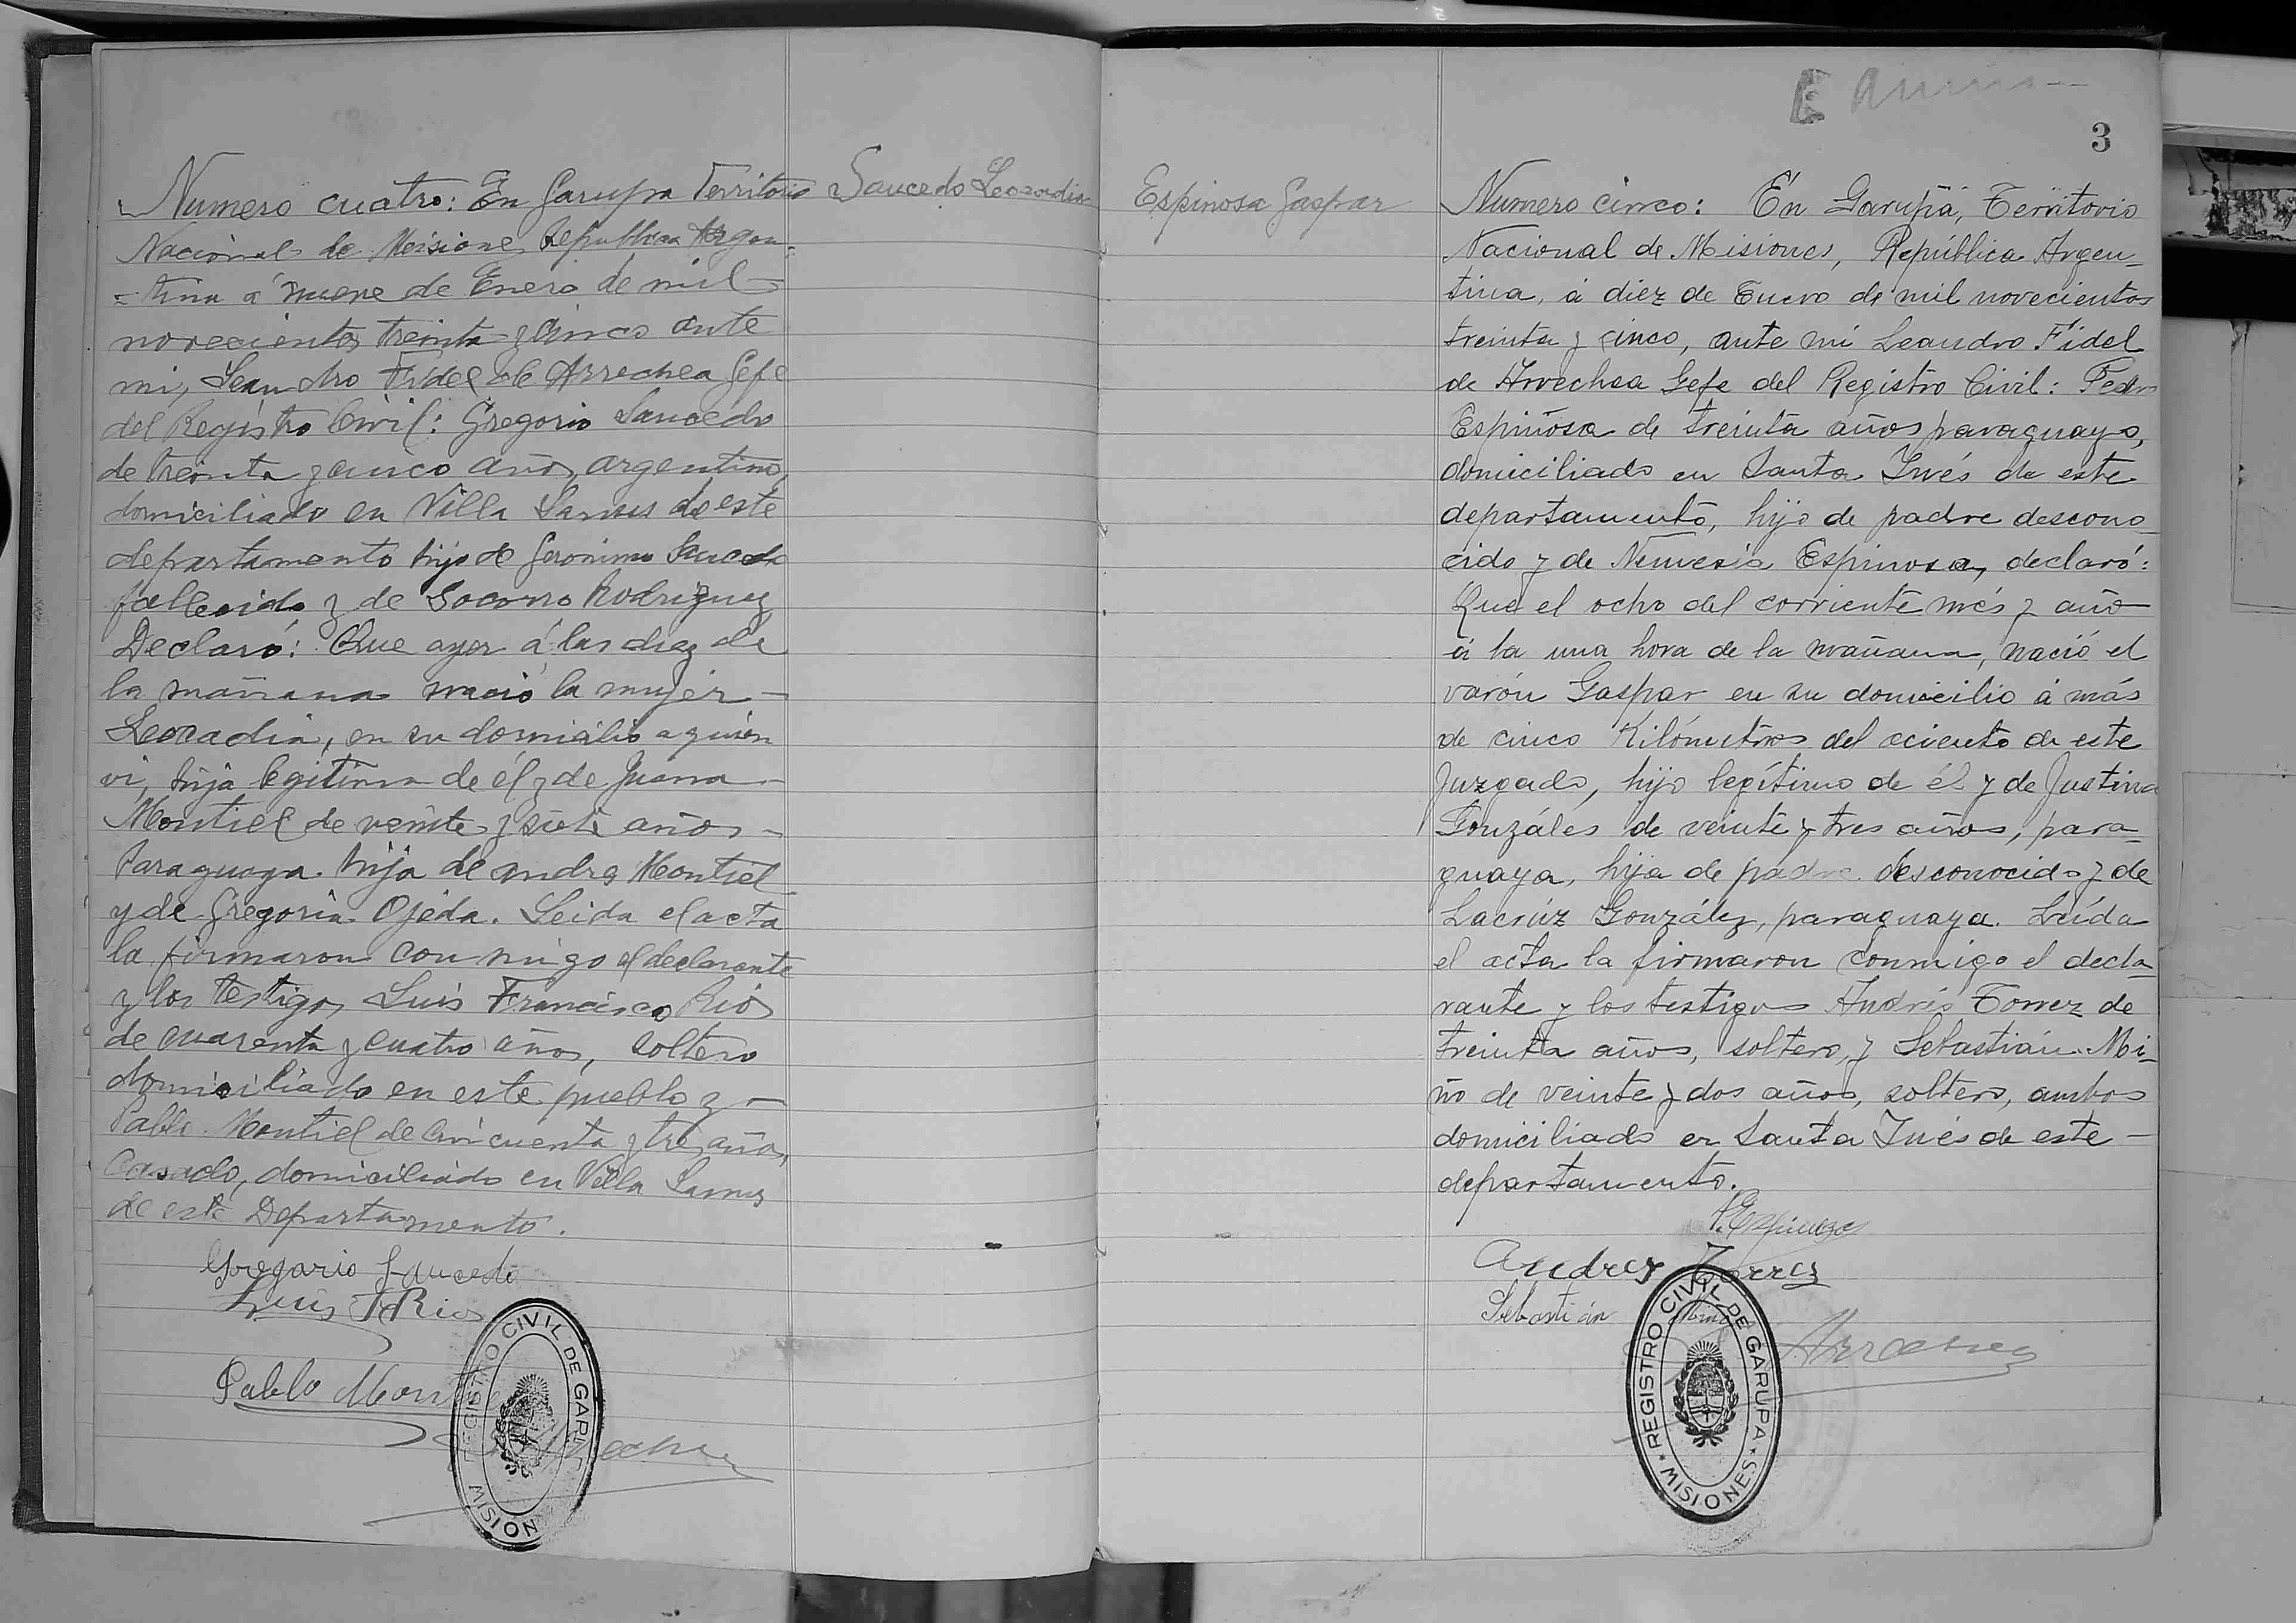 Numero cuatro: En Garupa Territorio
Nacional de Misiones Republica Argen-
-tina á nueve de Enero de mil
novecientos treinta y cinco ante
mi, Leandro Fidel de Arrechea Gefe
del Registro Civil: Gregorio Saucedo
de treinta y cinco años, argentino,
domiciliado en Villa Lanus de este
departamento hijo de Geronimo Saucedo
fallecido y de Socorro Rodriguez
Declaró: Que ayer á las diez de
la mañana nació la mujer
Leocadia, en su domicilio a quien
vi, hija legitima de él y de Juana
Montiel de veinte y siete años
Paraguaya. hija de Andres Montiel
y de Gregoria Ojeda. Leida el acta
la firmaron conmigo el declarante
y los testigos Luis Francisco Rios
de cuarenta y cuatro años, soltero
domiciliado en este pueblo y
Pablo Montiel de cincuenta y tres años,
Casado, domiciliado en Villa Lanus
de este Departamento.
Gregorio Saucedo
Luis F Rios
Pablo Montiel
REGISTRO CIVIL DE GARUPA
MISIONES
Saucedo Leocadia
3
Espinosa Gaspar
Numero cinco: En Garupá, Territorio
Nacional de Misiones, República Argen-
tina, á diez de Enero de mil novecientos
treinta y cinco, ante mi Leandro Fidel
de Arrechea Gefe del Registro Civil: Pedro
Espinosa de treinta años paraguayo,
domiciliado en Santa Inés de este
departamento, hijo de padre descono
cido y de Nemesia Espinosa, declaró:
Que el ocho del corriente més y año
á la una hora de la mañana, nació el
varón Gaspar en su domicilio á más
de cinco Kilómetros del aciento de este
Juzgado, hijo legítimo de él y de Justina
Gonzáles de veinte y tres años, para-
guaya, hija de padre desconocido y de
Lacrúz González, paraguaya. Leída
el acta la firmaron conmigo el decla-
rante y los testigos Andrés Torrez de
treinta años, soltero, y Sebastián Mi-
ño de veinte y dos años, soltero, ambos
domiciliado en Santa Inés de este
departamento.
P. Espinoza
Andres Torres
Sebastián Miño
Arrechea
REGISTRO CIVIL DE GARUPA
* MISIONES *